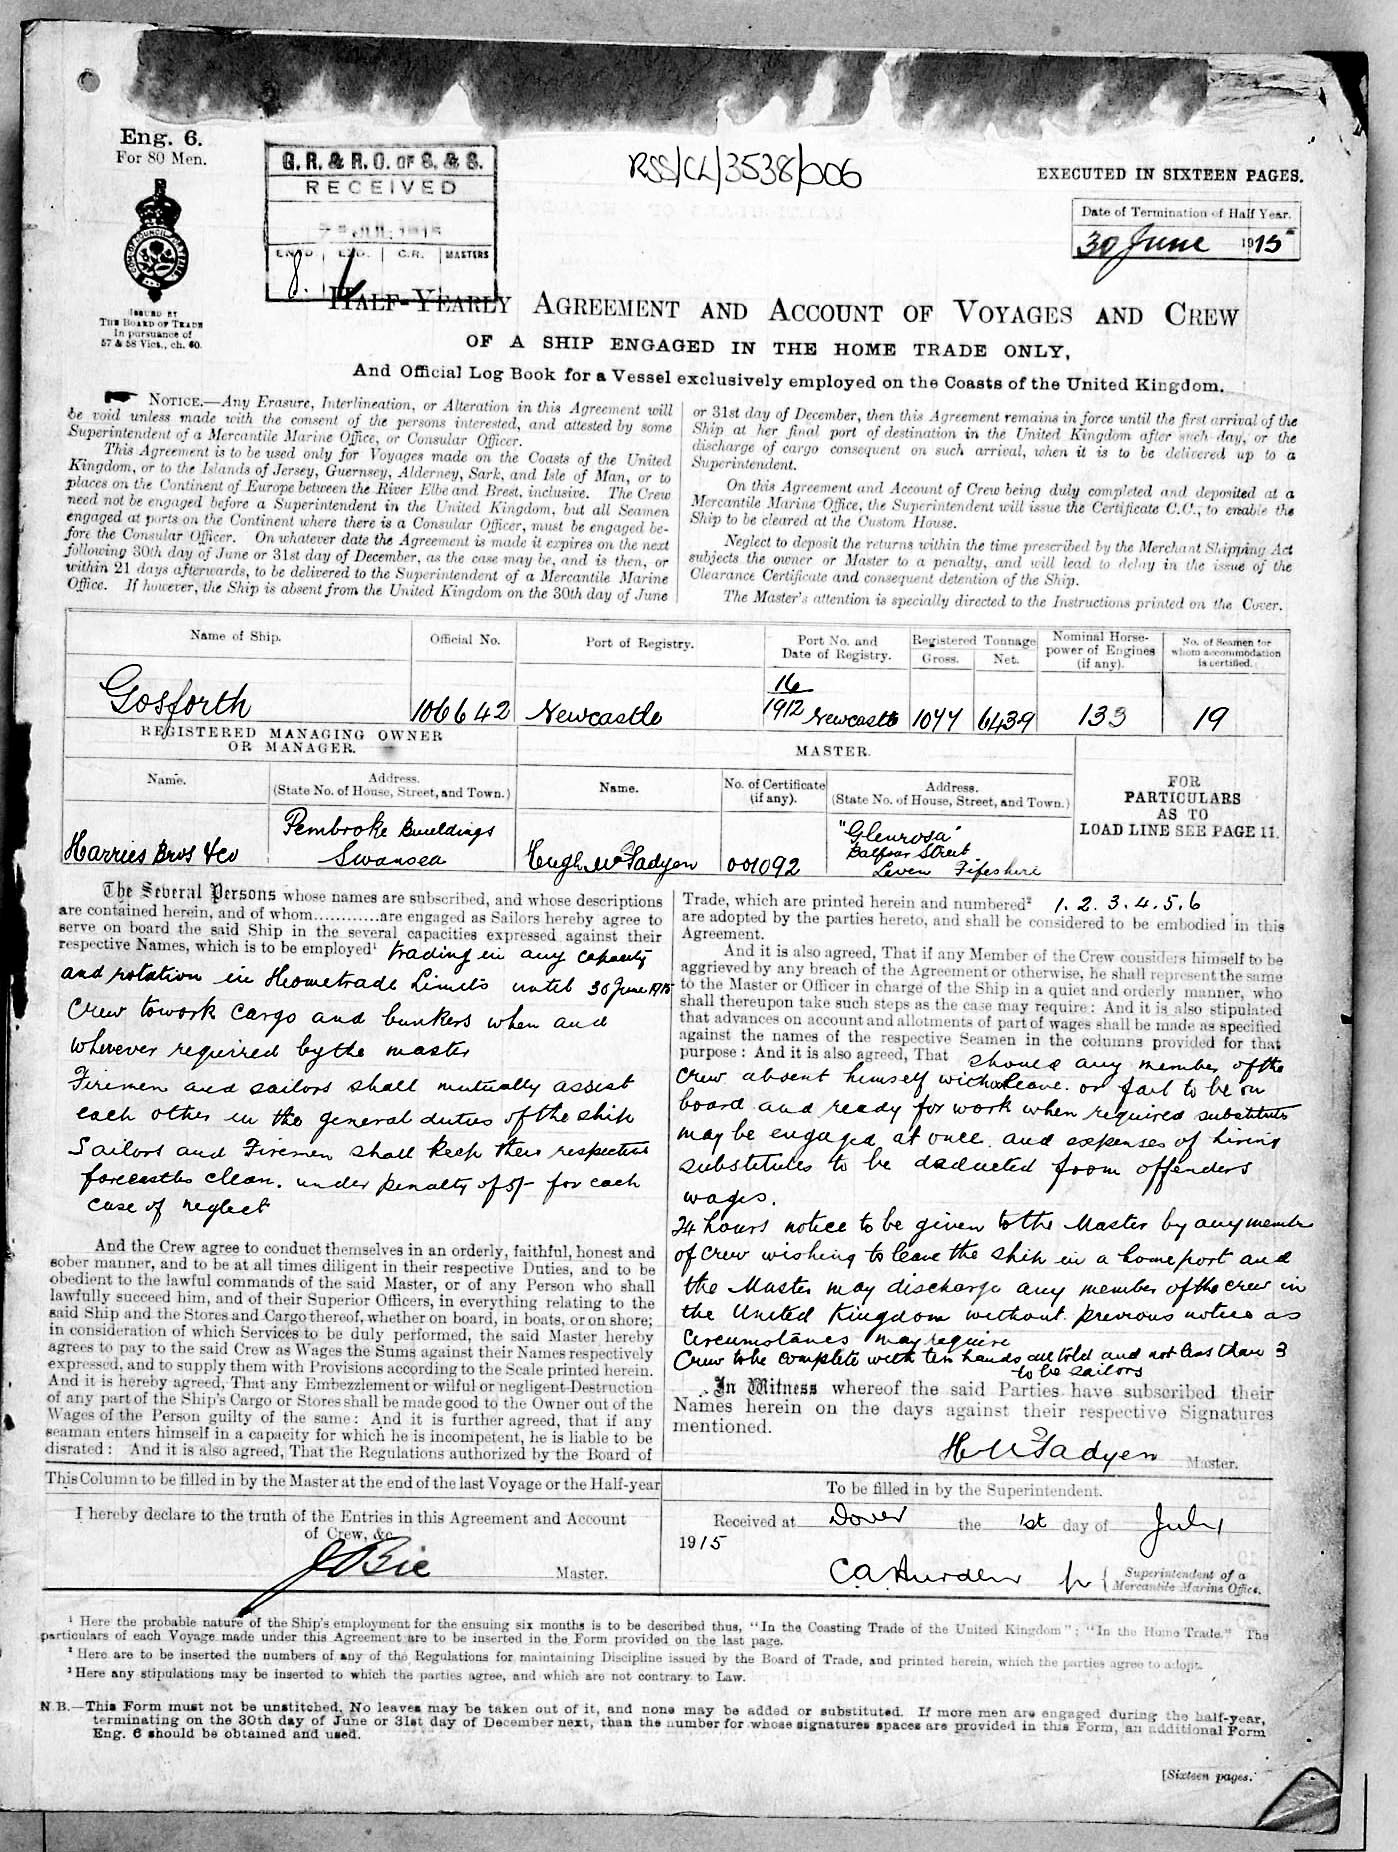 Eng. 6.
For 80 Men.
G. R. & R. O. OF S. & S.
RECEIVED
JUL 1915
C.R.
MASTERS
8.
RSS/CL/3538/006
EXECUTED IN SIXTEEN PAGES.
Date of Termination of Half Year.
30 June 1915
ISSUED BY
THE BOARD OF TRADE
In pursuance of
57 & 58 Vict., ch. 60.
HALF-YEARLY AGREEMENT AND ACCOUNT OF VOYAGES AND CREW
OF A SHIP ENGAGED IN THE HOME TRADE ONLY,
And Official Log Book for a Vessel exclusively employed on the Coasts of the United Kingdom.
NOTICE.—Any Erasure, Interlineation, or Alteration in this Agreement will
be void unless made with the consent of the persons interested, and attested by some
Superintendent of a Mercantile Marine Office, or Consular Officer.
This Agreement is to be used only for Voyages made on the Coasts of the United
Kingdom, or to the Islands of Jersey, Guernsey, Alderney, Sark, and Isle of Man, or to
places on the Continent of Europe between the River Elbe and Brest, inclusive. The Crew
need not be engaged before a Superintendent in the United Kingdom, but all Seamen
engaged at ports on the Continent where there is a Consular Officer, must be engaged be-
fore the Consular Officer. On whatever date the Agreement is made it expires on the next
following 30th day of June or 31st day of December, as the case may be, and is then, or
within 21 days afterwards, to be delivered to the Superintendent of a Mercantile Marine
Office. If however, the Ship is absent from the United Kingdom on the 30th day of June
or 31st day of December, then this Agreement remains in force until the first arrival of the
Ship at her final port of destination in the United Kingdom after such day, or the
discharge of cargo consequent on such arrival, when it is to be delivered up to a
Superintendent.
On this Agreement and Account of Crew being duly completed and deposited at a
Mercantile Marine Office, the Superintendent will issue the Certificate C.C., to enable the
Ship to be cleared at the Custom House.
Neglect to deposit the returns within the time prescribed by the Merchant Shipping Act
subjects the owner or Master to a penalty, and will lead to delay in the issue of the
Clearance Certificate and consequent detention of the Ship.
The Master's attention is specially directed to the Instructions printed on the Cover.
Name of Ship.
Official No.
Port of Registry.
Port No. and
Date of Registry.
Registered Tonnage
Gross.
Net.
Nominal Horse-
power of Engines
(if any).
No. of Seamen for
whom accommodation
is certified.
Gosforth
106642
Newcastle
16
1912 Newcastle
1077
643.9
133
19
REGISTERED MANAGING OWNER
OR MANAGER.
MASTER.
Name.
Address.
(State No. of House, Street, and Town.)
Name.
No. of Certificate
(if any).
Address.
(State No. of House, Street, and Town.)
FOR
PARTICULARS
AS TO
LOAD LINE SEE PAGE 11.
Harries Bros & Co
Pembroke Buildings
Swansea
Hugh McFadyen
001092
"Glenrosa"
Balfour Street
Leven Fifeshire
The Several Persons whose names are subscribed, and whose descriptions
are contained herein, and of whom............are engaged as Sailors hereby agree to
serve on board the said Ship in the several capacities expressed against their
respective Names, which is to be employed¹ trading in any capacity
and rotation in Hometrade Limits until 30 June 1915
Crew to work cargo and bunkers when and
wherever required by the master
Firemen and sailors shall mutually assist
each other in the general duties of the ship
Sailors and Firemen shall keep their respective
forecastles clean. under penalty of 5/- for each
case of neglect
And the Crew agree to conduct themselves in an orderly, faithful, honest and
sober manner, and to be at all times diligent in their respective Duties, and to be
obedient to the lawful commands of the said Master, or of any Person who shall
lawfully succeed him, and of their Superior Officers, in everything relating to the
said Ship and the Stores and Cargo thereof, whether on board, in boats, or on shore;
in consideration of which Services to be duly performed, the said Master hereby
agrees to pay to the said Crew as Wages the Sums against their Names respectively
expressed, and to supply them with Provisions according to the Scale printed herein.
And it is hereby agreed, That any Embezzlement or wilful or negligent Destruction
of any part of the Ship's Cargo or Stores shall be made good to the Owner out of the
Wages of the Person guilty of the same: And it is further agreed, that if any
seaman enters himself in a capacity for which he is incompetent, he is liable to be
disrated: And it is also agreed, That the Regulations authorized by the Board of
Trade, which are printed herein and numbered² 1. 2. 3. 4. 5. 6
are adopted by the parties hereto, and shall be considered to be embodied in this
Agreement.
And it is also agreed, That if any Member of the Crew considers himself to be
aggrieved by any breach of the Agreement or otherwise, he shall represent the same
to the Master or Officer in charge of the Ship in a quiet and orderly manner, who
shall thereupon take such steps as the case may require: And it is also stipulated
that advances on account and allotments of part of wages shall be made as specified
against the names of the respective Seamen in the columns provided for that
purpose: And it is also agreed, That should any member of the
crew absent himself without leave. or fail to be on
board and ready for work when required substitute
may be engaged at once. and expenses of hiring
substitutes to be deducted from offenders
wages.
24 hours notice to be given to the Master by any member
of crew wishing to leave the ship in a home port and
the Master may discharge any member of the crew in
the United Kingdom without previous notice as
Circumstances may require
Crew to be complete with ten hands all told and not less than 3
to be sailors
In Witness whereof the said Parties have subscribed their
Names herein on the days against their respective Signatures
mentioned.
H McFadyen Master.
This Column to be filled in by the Master at the end of the last Voyage or the Half-year
I hereby declare to the truth of the Entries in this Agreement and Account
of Crew, &c.
J Bie Master.
To be filled in by the Superintendent.
Received at Dover the 1st day of July
1915
Superintendent of a
Mercantile Marine Office.
¹ Here the probable nature of the Ship's employment for the ensuing six months is to be described thus, "In the Coasting Trade of the United Kingdom"; "In the Home Trade." The
particulars of each Voyage made under this Agreement are to be inserted in the Form provided on the last page.
² Here are to be inserted the numbers of any of the Regulations for maintaining Discipline issued by the Board of Trade, and printed herein, which the parties agree to adopt.
³ Here any stipulations may be inserted to which the parties agree, and which are not contrary to Law.
N.B.—This Form must not be unstitched. No leaves may be taken out of it, and none may be added or substituted. If more men are engaged during the half-year,
terminating on the 30th day of June or 31st day of December next, than the number for whose signatures spaces are provided in this Form, an additional Form
Eng. 6 should be obtained and used.
[Sixteen pages.